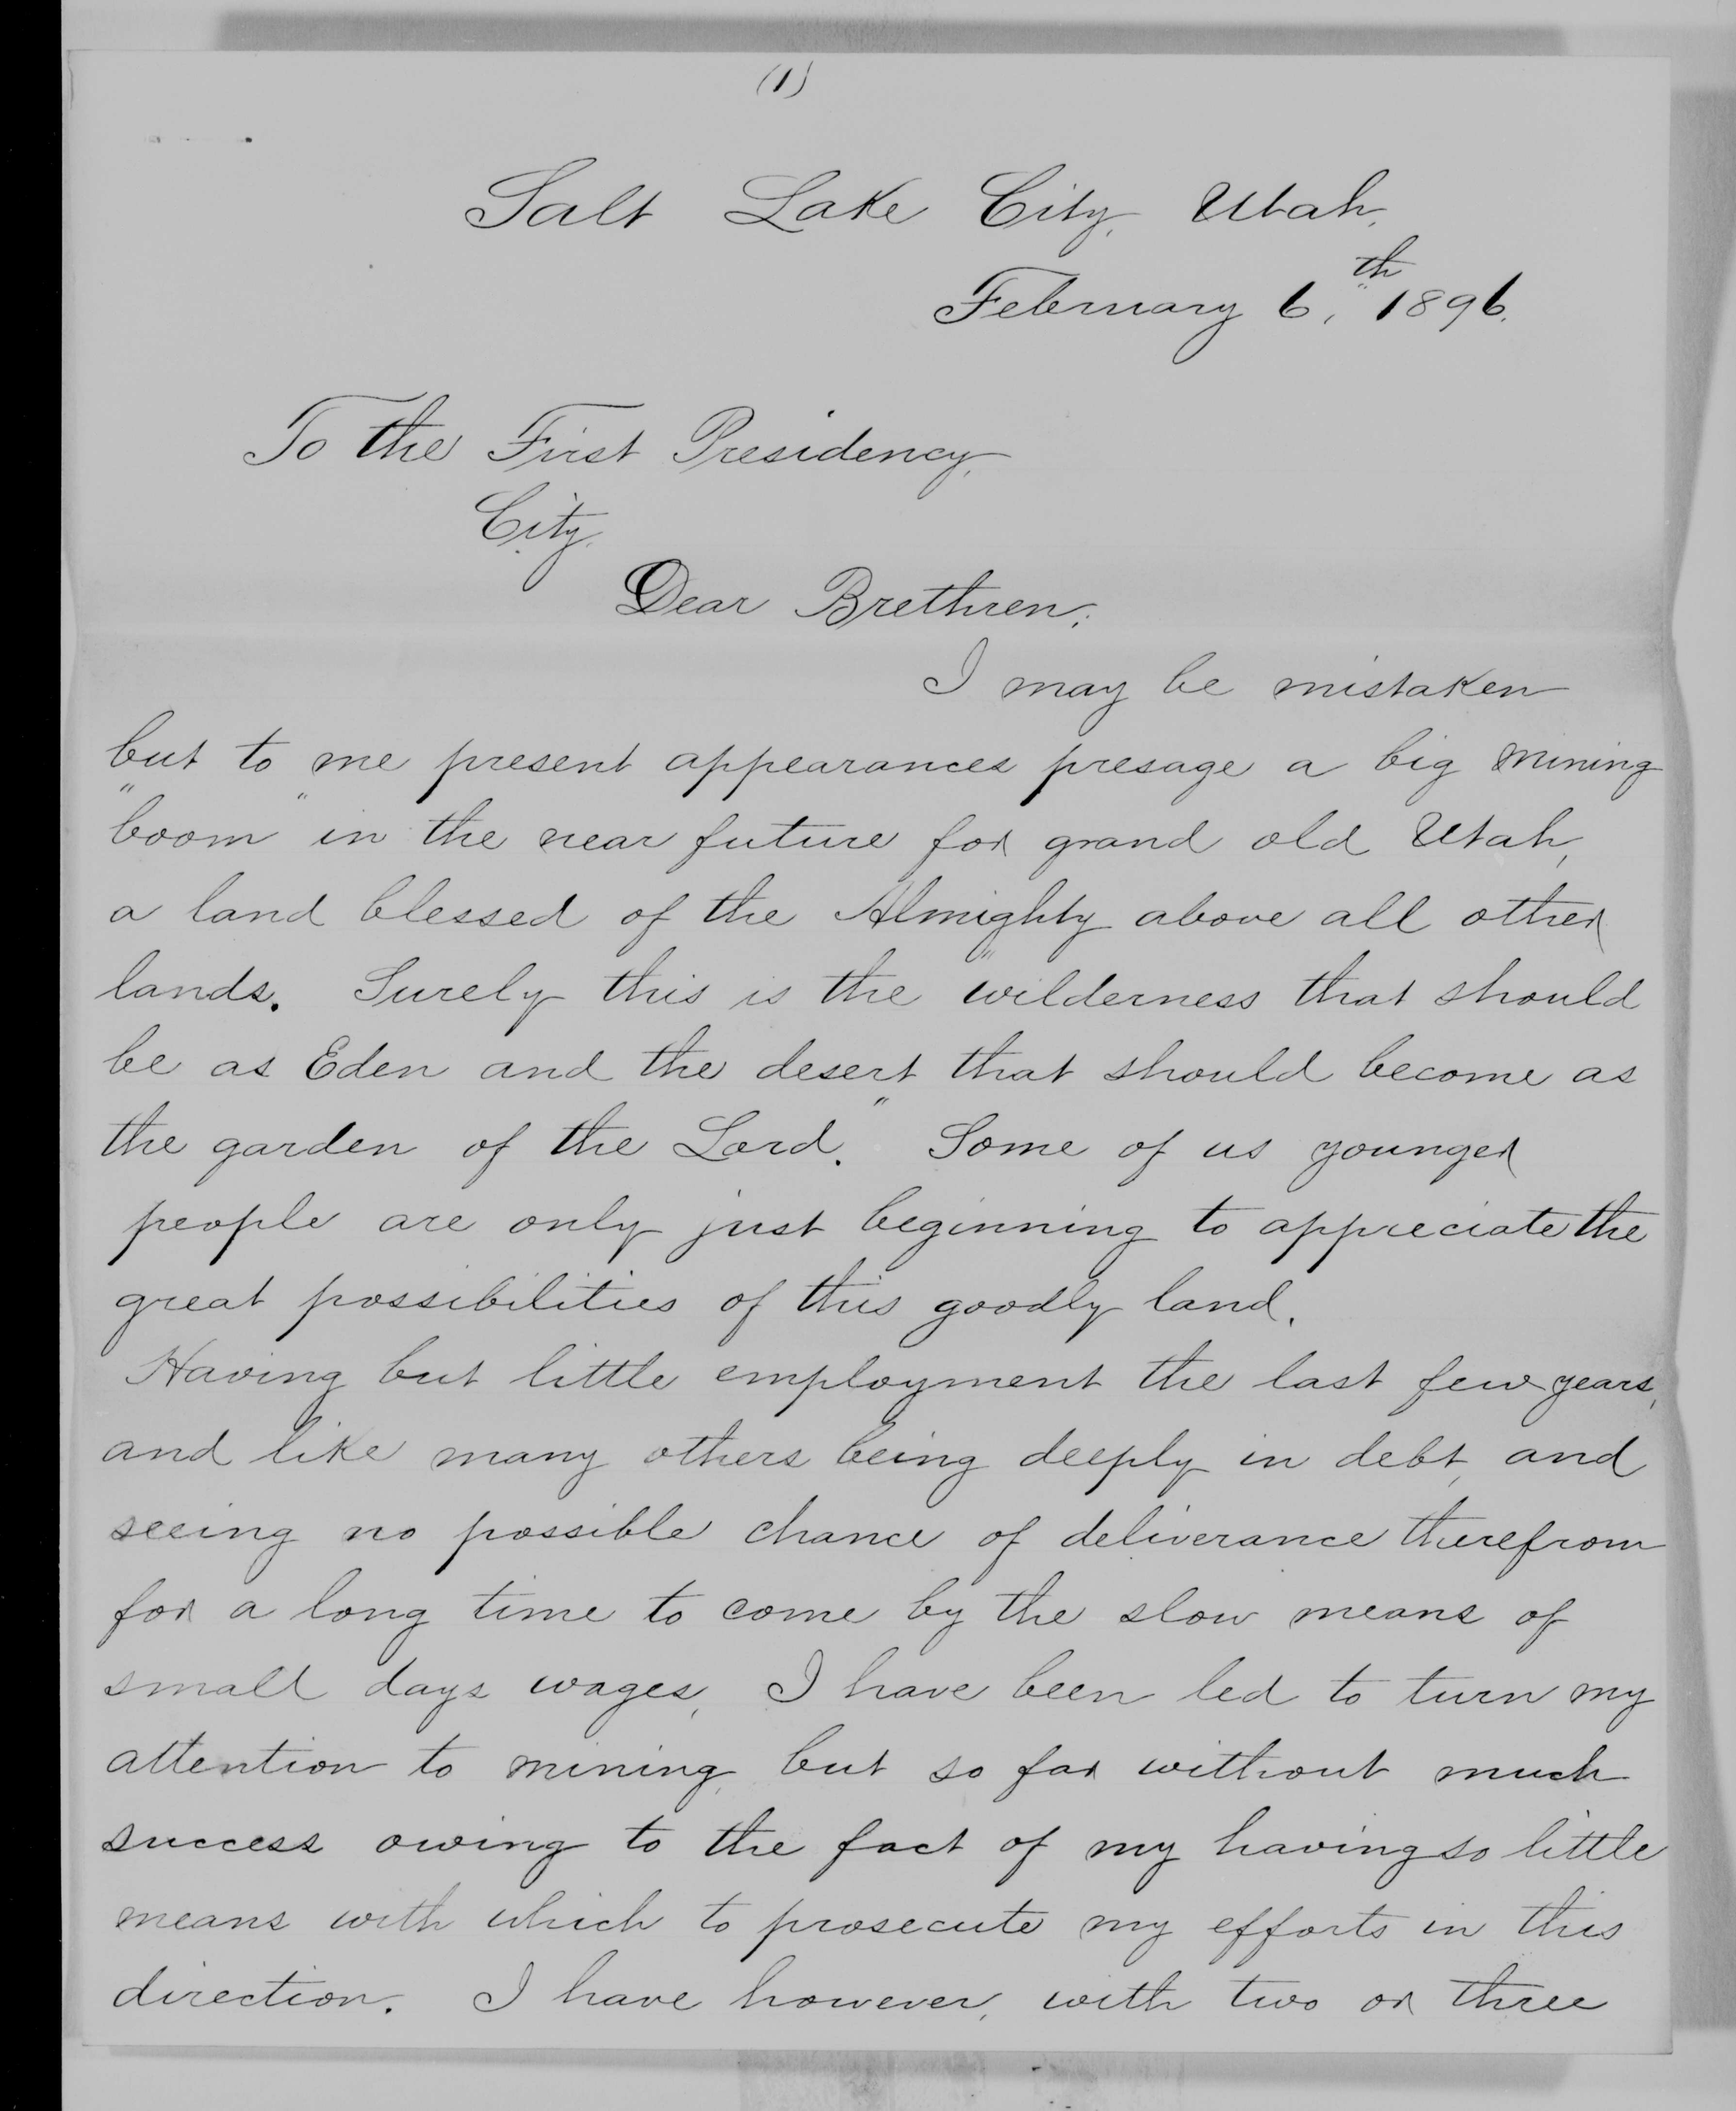 (1)
Salt Lake City, Utah,
February 6,th 1896.
To the First Presidency,
City.
Dear Brethren;
I may be mistaken
but to me present appearances presage a big mining
"boom" in the near future for grand old Utah,
a land blessed of the Almighty above all other
lands. Surely this is the "wilderness that should
be as Eden and the desert that should become as
the garden of the Lord." Some of us younger
people are only just beginning to appreciate the
great possibilities of this goodly land.
Having but little employment the last few years,
and like many others being deeply in debt, and
seeing no possible chance of deliverance therefrom
for a long time to come by the slow means of
small days wages, I have been led to turn my
attention to mining, but so far without much
success owing to the fact of my having so little
means with which to prosecute my efforts in this
direction. I have however, with two or three